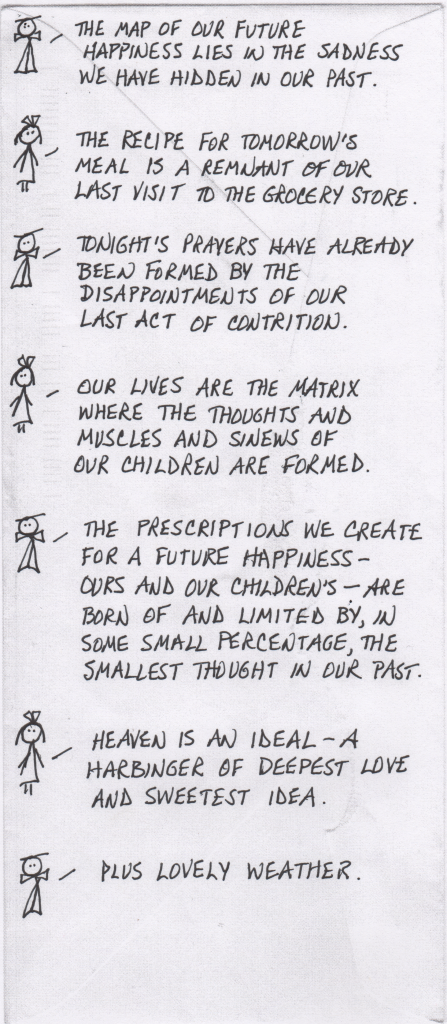 THE MAP OF OUR FUTURE
HAPPINESS LIES IN THE SADNESS
WE HAVE HIDDEN IN OUR PAST.
THE RECIPE FOR TOMORROW'S
MEAL IS A REMNANT OF OUR
LAST VISIT TO THE GROCERY STORE.
TONIGHT'S PRAYERS HAVE ALREADY
BEEN FORMED BY THE
DISAPPOINTMENTS OF OUR
LAST ACT OF CONTRITION.
OUR LIVES ARE THE MATRIX
WHERE THE THOUGHTS AND
MUSCLES AND SINEWS OF
OUR CHILDREN ARE FORMED.
THE PRESCRIPTIONS WE CREATE
FOR A FUTURE HAPPINESS –
OURS AND OUR CHILDREN'S – ARE
BORN OF AND LIMITED BY, IN
SOME SMALL PERCENTAGE, THE
SMALLEST THOUGHT IN OUR PAST.
HEAVEN IS AN IDEAL – A
HARBINGER OF DEEPEST LOVE
AND SWEETEST IDEA.
PLUS LOVELY WEATHER.